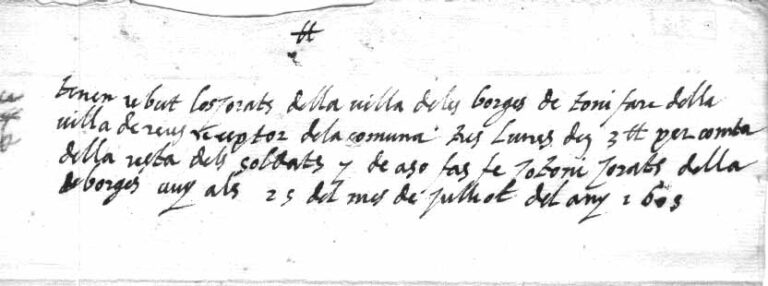 tt
tenen rebut los Jorats della villa deles borges de toni fare della
villa de reus Receptor dela comuna tres liures dig 3 tt per comta
della resta dels soldats y de aso fas fe Jo toni Jorats della
borges vuy als 25 del mes de Julliol del any 1603